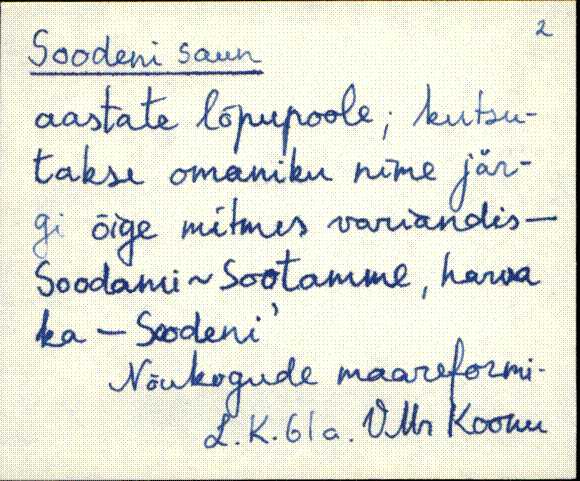 2
Soodeni saun
aastate lõpupoole; kutsu-
takse omaniku nime jär-
gi õige mitmes variandis —
Soodami ~ Sootamme, harva
ka — Soodeni'
Nõukogude maareformi-
L.K. 61a. VMr Koonu